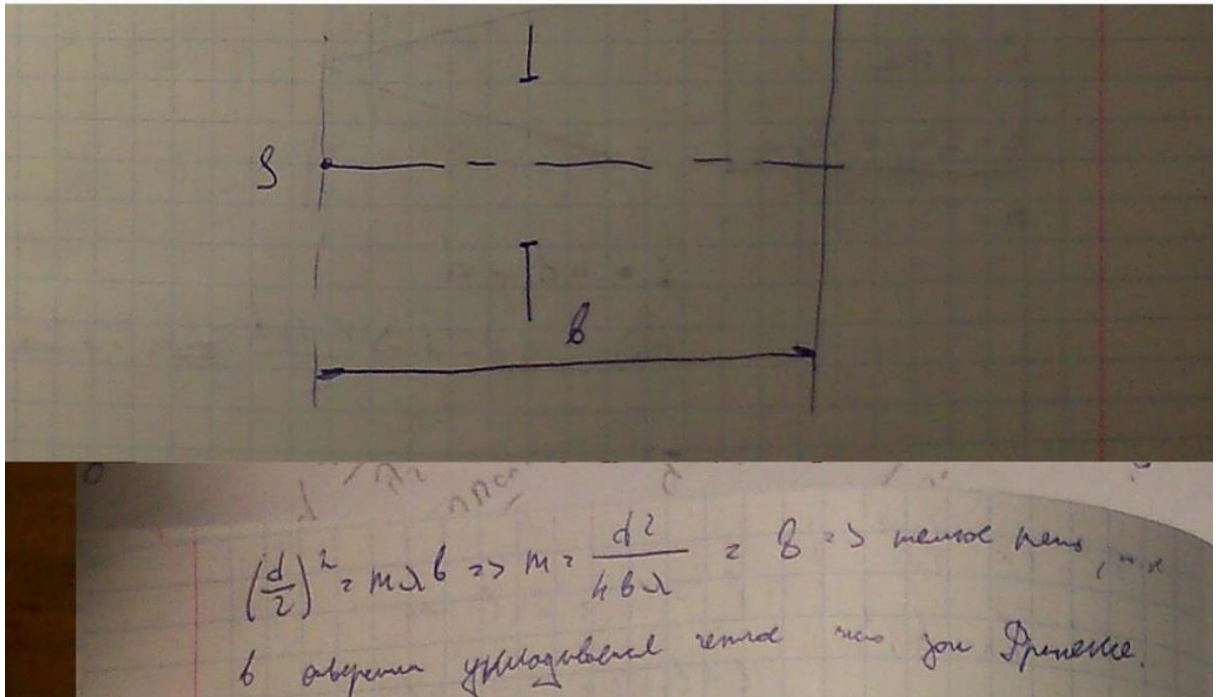 S
в
(d/2)² = mλв => m = d²/4вλ = 8 => темное пятно, т.к
в отверстии укладывается четное число зон Френеля.